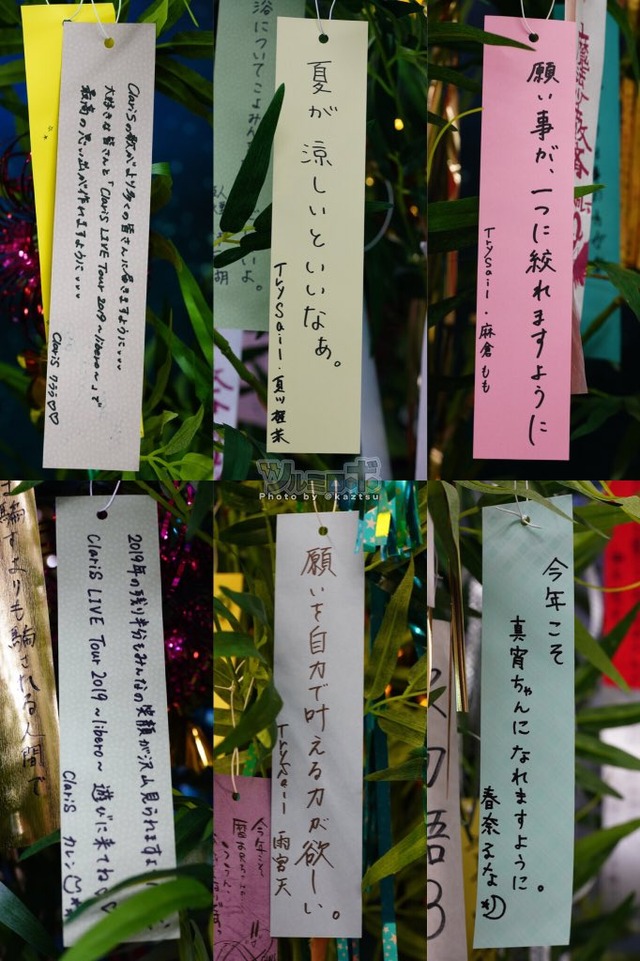 ClariSの歌がより多くの皆さんに届きますように…
大好きな皆さんと「ClariS LIVE Tour 2019 ~libero~」で
最高の思い出が作れますように…
ClariS クララ♡♡
夏が涼しいといいなぁ。
TrySail・夏川椎菜
浴についてこよみん
いよ。
願い事が、一つに絞れますように
TrySail・麻倉もも
ツルミロボ
Photo by @kaztsu
2019年の残り半分もみんなの笑顔が沢山見られますように
ClariS LIVE Tour 2019 ~libero~ 遊びに来てね
ClariS カレン
騙すよりも騙される人間で
願いを自力で叶える力が欲しい。
TrySail 雨宮天
今年こそ
今年こそ
真宵ちゃんになれますように。
春奈るな